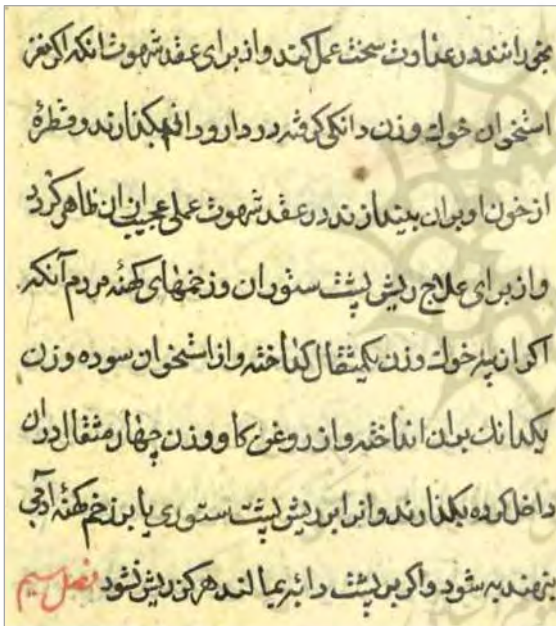 بخورانند در عداوت سخت عمل کند و از برای عقد شهوت انکه اکر مغز
استخوان خوک وزن دانکی کرفته در دارودانی بکذارند و قطرهٔ
از خون او بران بیندازند در عقد شهوت عملی عجیب ازان ظاهر کردد
و از برای علاج ریش پشت ستوران و زخمهای کهنه مردم آنکه
اکر از پیه خوک وزن یکمثقال کداخته و از استخوان سوده وزن
یکدانک بران انداخته و از روغن کاو وزن چهار مثقال دران
داخل کرده بکذارند و انرا بر ریش پشت ستوری یا بر زخم کهنه آدمی
بنهند به شود و اکر بر پشت دابه بمالند هرکز ریش نشود فصل سیم